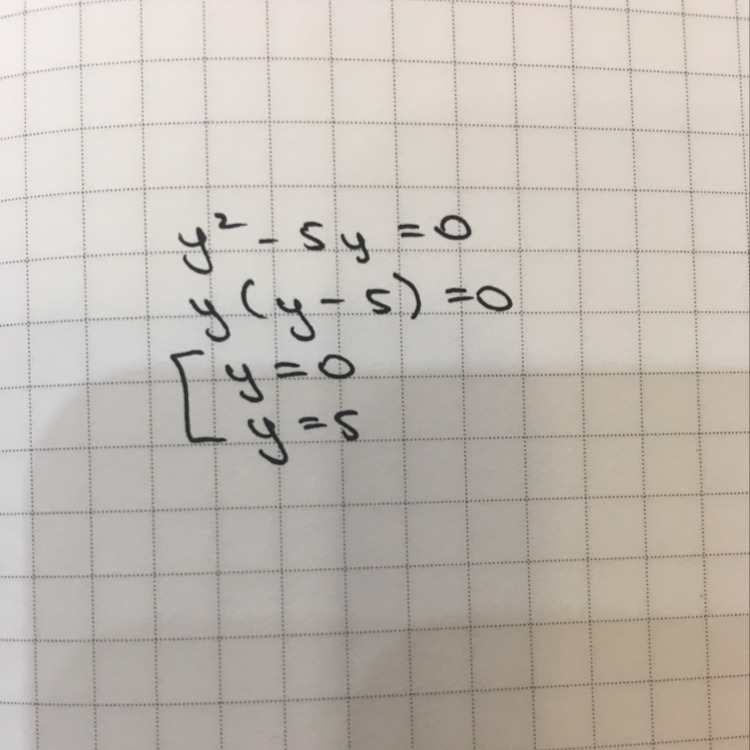 y² - 5y = 0
y(y - 5) = 0
[ y = 0
y = 5